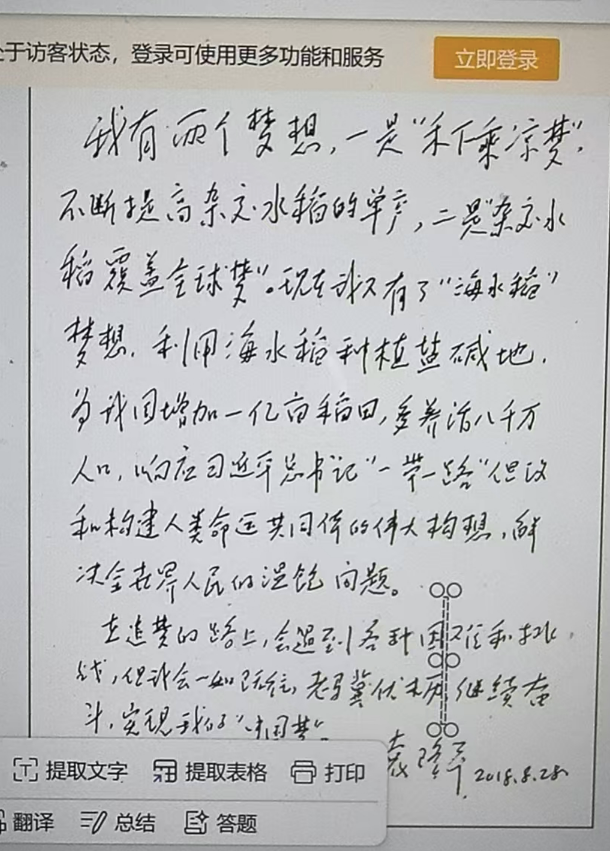 处于访客状态，登录可使用更多功能和服务
立即登录
我有两个梦想，一是“禾下乘凉梦”，
不断提高杂交水稻的单产，二是“杂交水
稻覆盖全球梦”。现在我又有了“海水稻”
梦想，利用海水稻种植盐碱地，
为我国增加一亿亩稻田，多养活八千万
人口，响应习近平总书记“一带一路”倡议
和构建人类命运共同体的伟大构想，解
决全世界人民的温饱问题。
在追梦的路上，会遇到各种困难和挑
战，但我会一如既往，老骥伏枥，继续奋
斗，实现我的“中国梦”。
袁隆平 2018.8.28.
提取文字 提取表格 打印
翻译 总结 答题